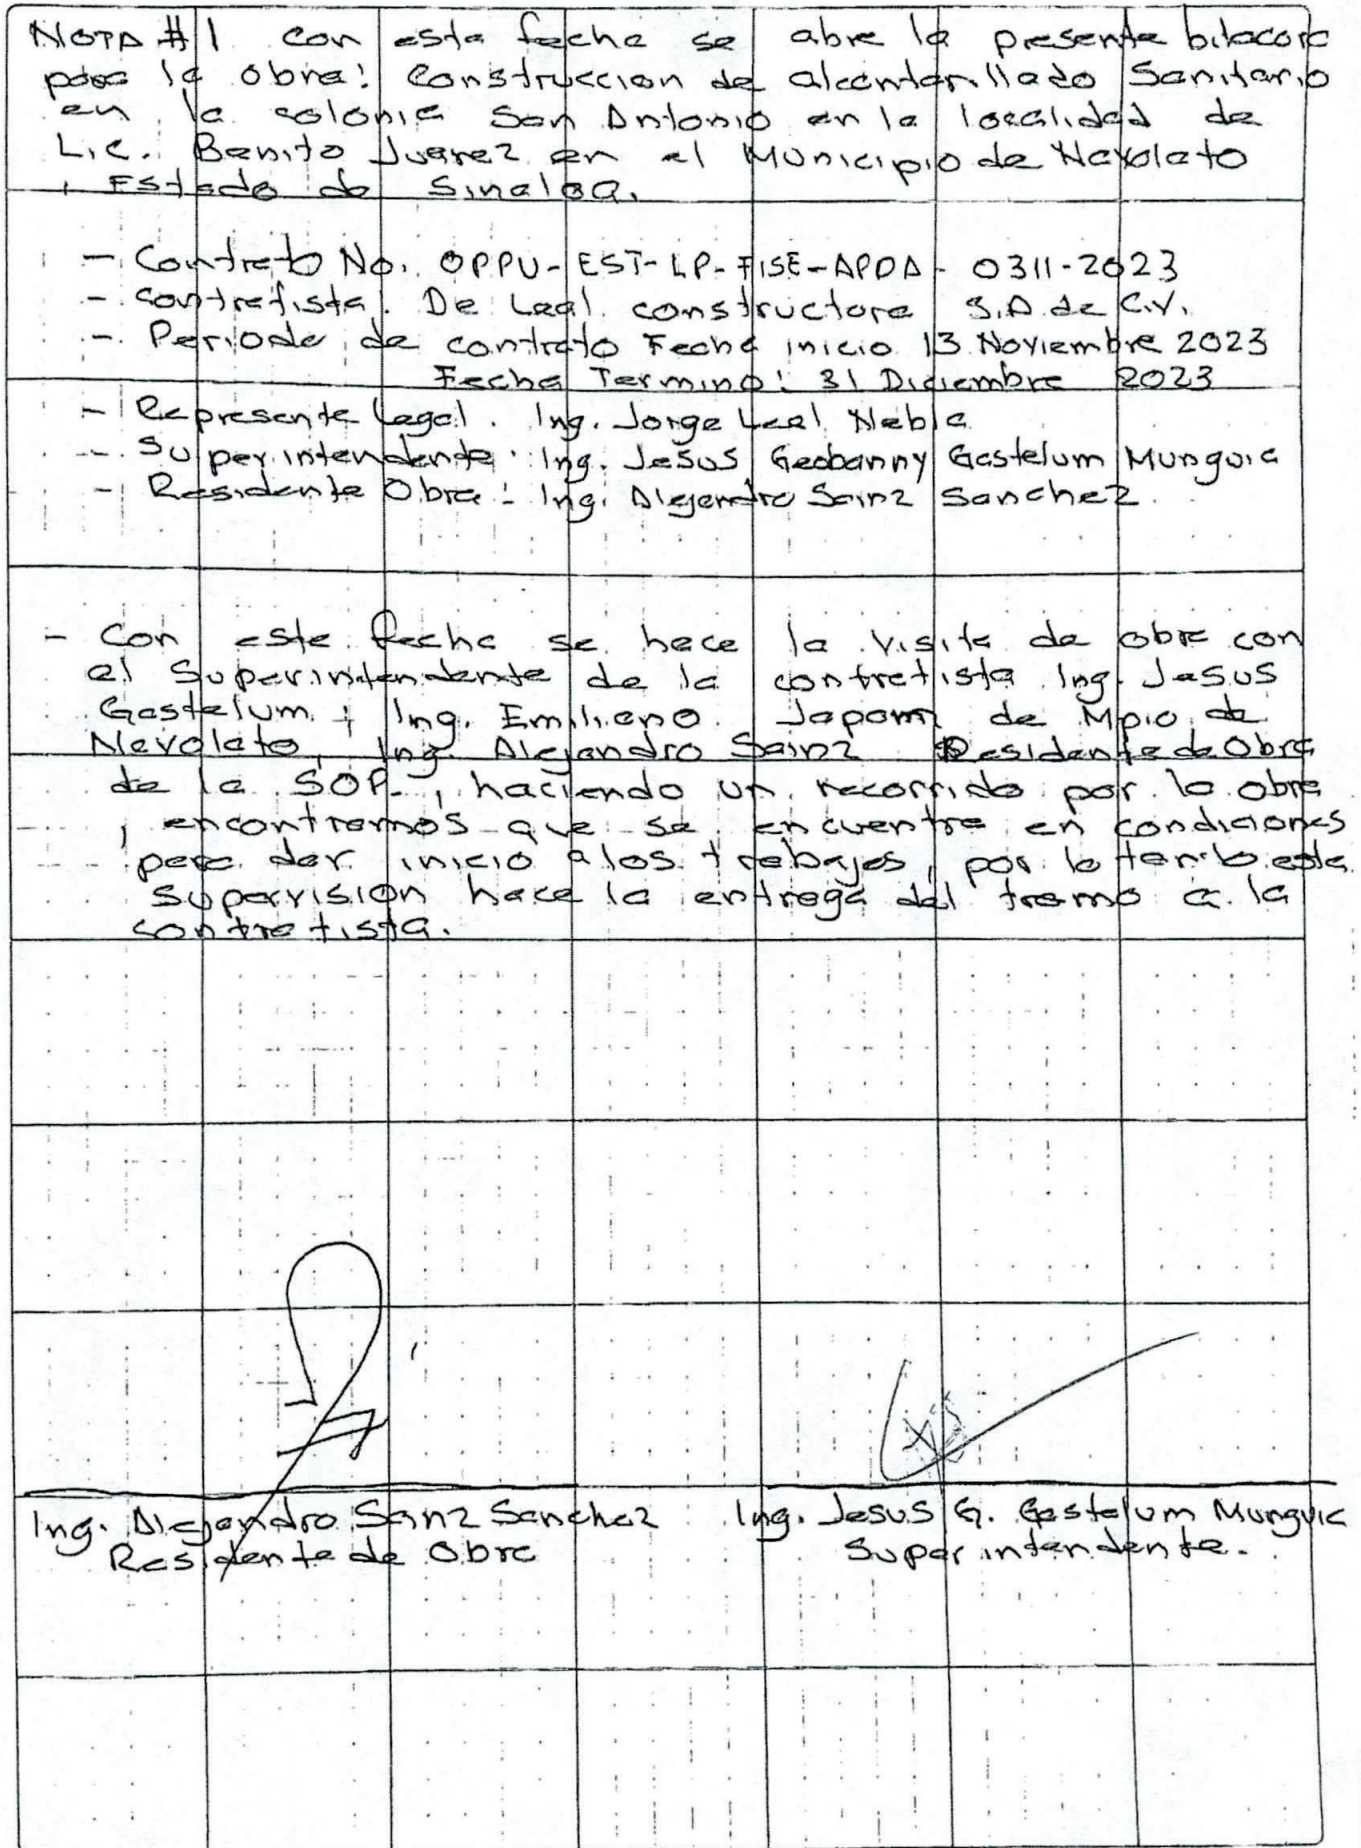 NOTA #1 con esta fecha se abre la presente bitacora
para la obra: Construccion de alcantarillado Sanitario
en la colonia San Antonio en la localidad de
Lic. Benito Juarez en el Municipio de Navolato
, Estado de Sinaloa.
- Contrato No. OPPU-EST-LP-FISE-APDA-0311-2023
- contratista. De Leal constructora S.A de C.V.
- Periodo de contrato Fecha inicio 13 Noviembre 2023
Fecha Termino: 31 Diciembre 2023
- Represente Legal. Ing. Jorge Leal Nebla
- Superintendente: Ing. Jesus Geobanny Gastelum Munguia
- Residente Obra: Ing. Alejandro Sainz Sanchez.
- Con este fecha se hace la visita de obra con
el Superintendente de la contratista Ing. Jesus
Gastelum, Ing. Emiliano de Mpio de
Navolato, Ing. Alejandro Sainz Residente de Obra
de la SOP., haciendo un recorrido por la obra
, encontramos que se encuentra en condiciones
para dar inicio a los trabajos, por lo tanto esta
supervision hace la entrega del tramo a la
contratista.
Ing. Alejandro Sainz Sanchez
Residente de Obra
Ing. Jesus G. Gastelum Munguia
Superintendente.